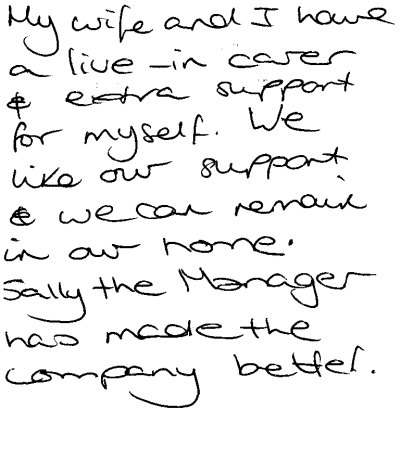 My wife and I have
a live-in carer
& extra support
for myself. We
like our support
& we can remain
in our home.
Sally the Manager
has made the
company better.